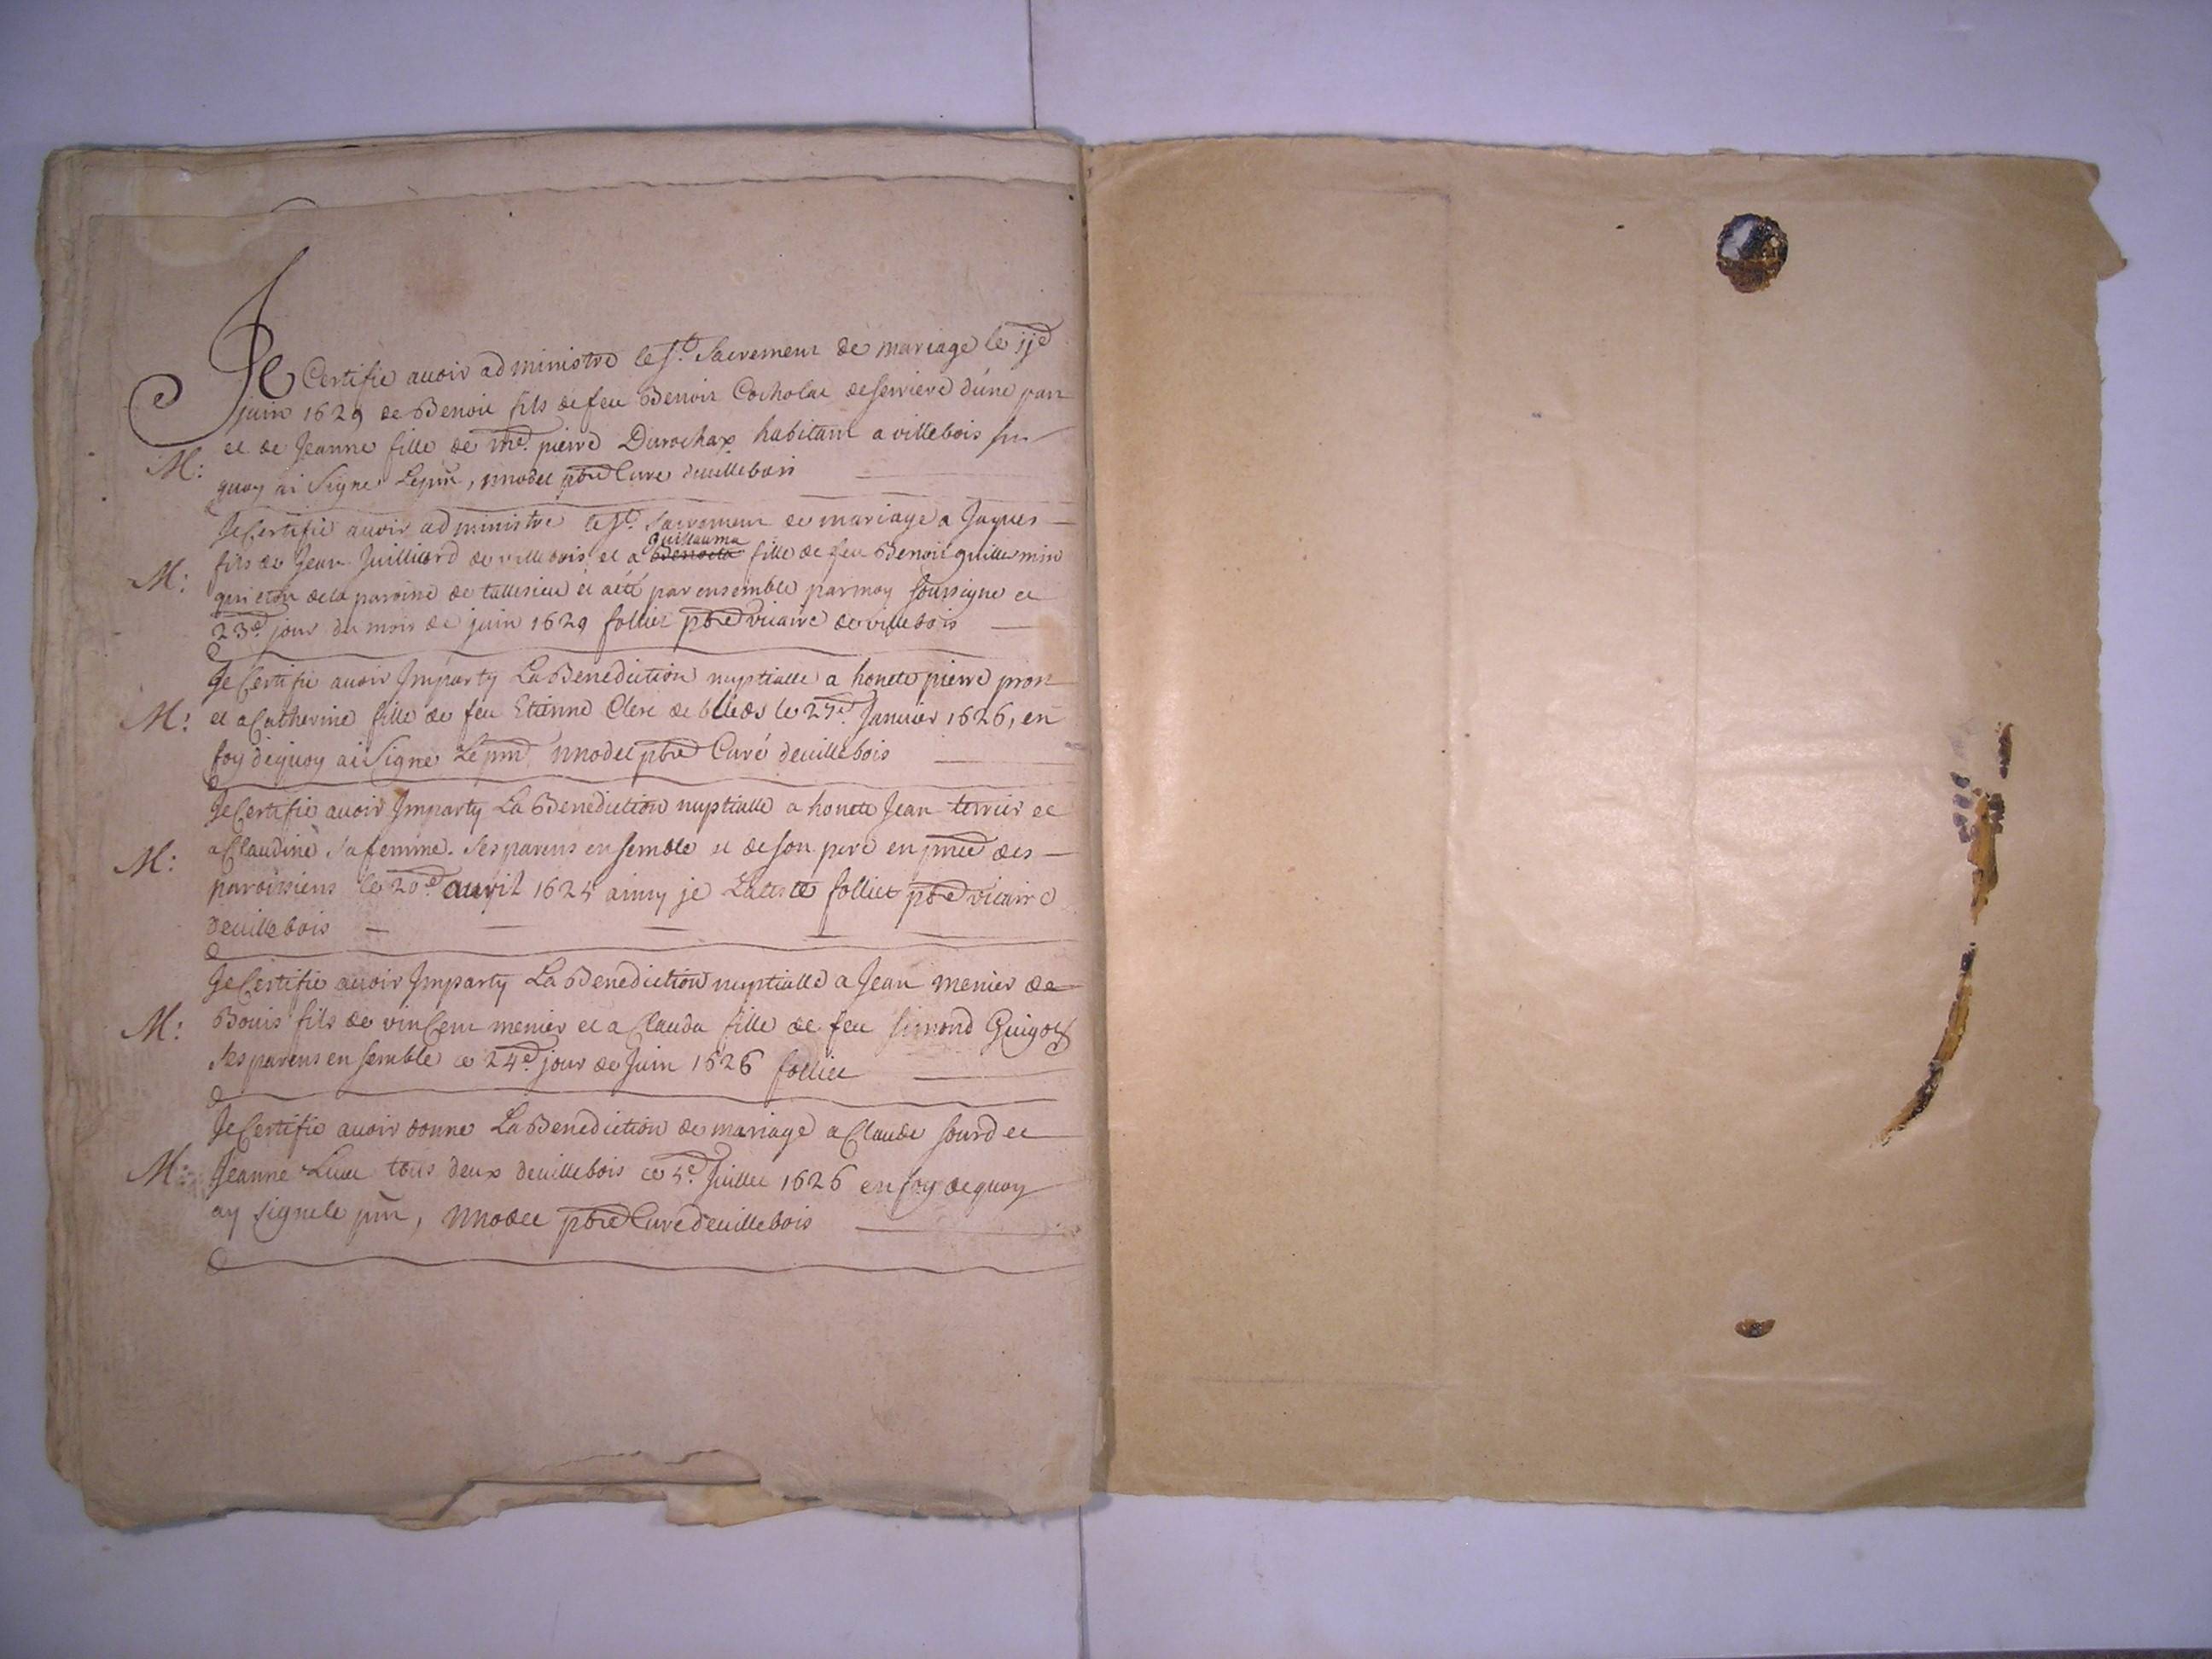 Je Certifie auoir administre le st. Sacrement de mariage le ije
juin 1629 de Benoit fils de feu Benoit Cocholat de serriere d'une part
et de Jeanne fille de me. pierre Durochax habitant a villebois sur
M: quoy ai Signe Lepnt, pbre Cure deuillebois
Je Certifie auoir administre le st. Sacrement de mariage a Jaques
Guillauma
M: fils de Jean Juilliard de villebois et a Benoita fille de feu Benoit guillemin
de la paroisse de tallisieu et a été par ensemble parmoy soussigne ce
23e. jour du mois de juin 1629 folliet pbre vicaire de villebois
Je Certifie auoir Imparty La Benediction nuptialle a honete pierre pron
M: et a Catherine fille de feu Etienne Clerc de le 27e. Januier 1626, en
foy dequoy ai Signe Le pnt pbre Curé deuillebois
Je Certifie auoir Imparty La Benediction nuptialle a honete Jean terrier et
M: a Claudine sa femme. ses parens ensemble et de son pere en pnce des
paroissiens le 20e auril 1625 ainsy je L'atteste folliet pbre vicaire
deuillebois
Je Certifie auoir Imparty La Benediction nuptialle a Jean menier de
M: Bouis fils de vincent menier et a Clauda fille de feu simond Guigot
ses parens ensemble ce 24e. jour de Juin 1626 folliet
Je Certifie auoir donne La Benediction de mariage a Claude sourd et
M: Jeanne tous deux deuillebois ce 5e. Juillet 1626 en foy dequoy
ay signe le pnt, pbre Cure deuillebois